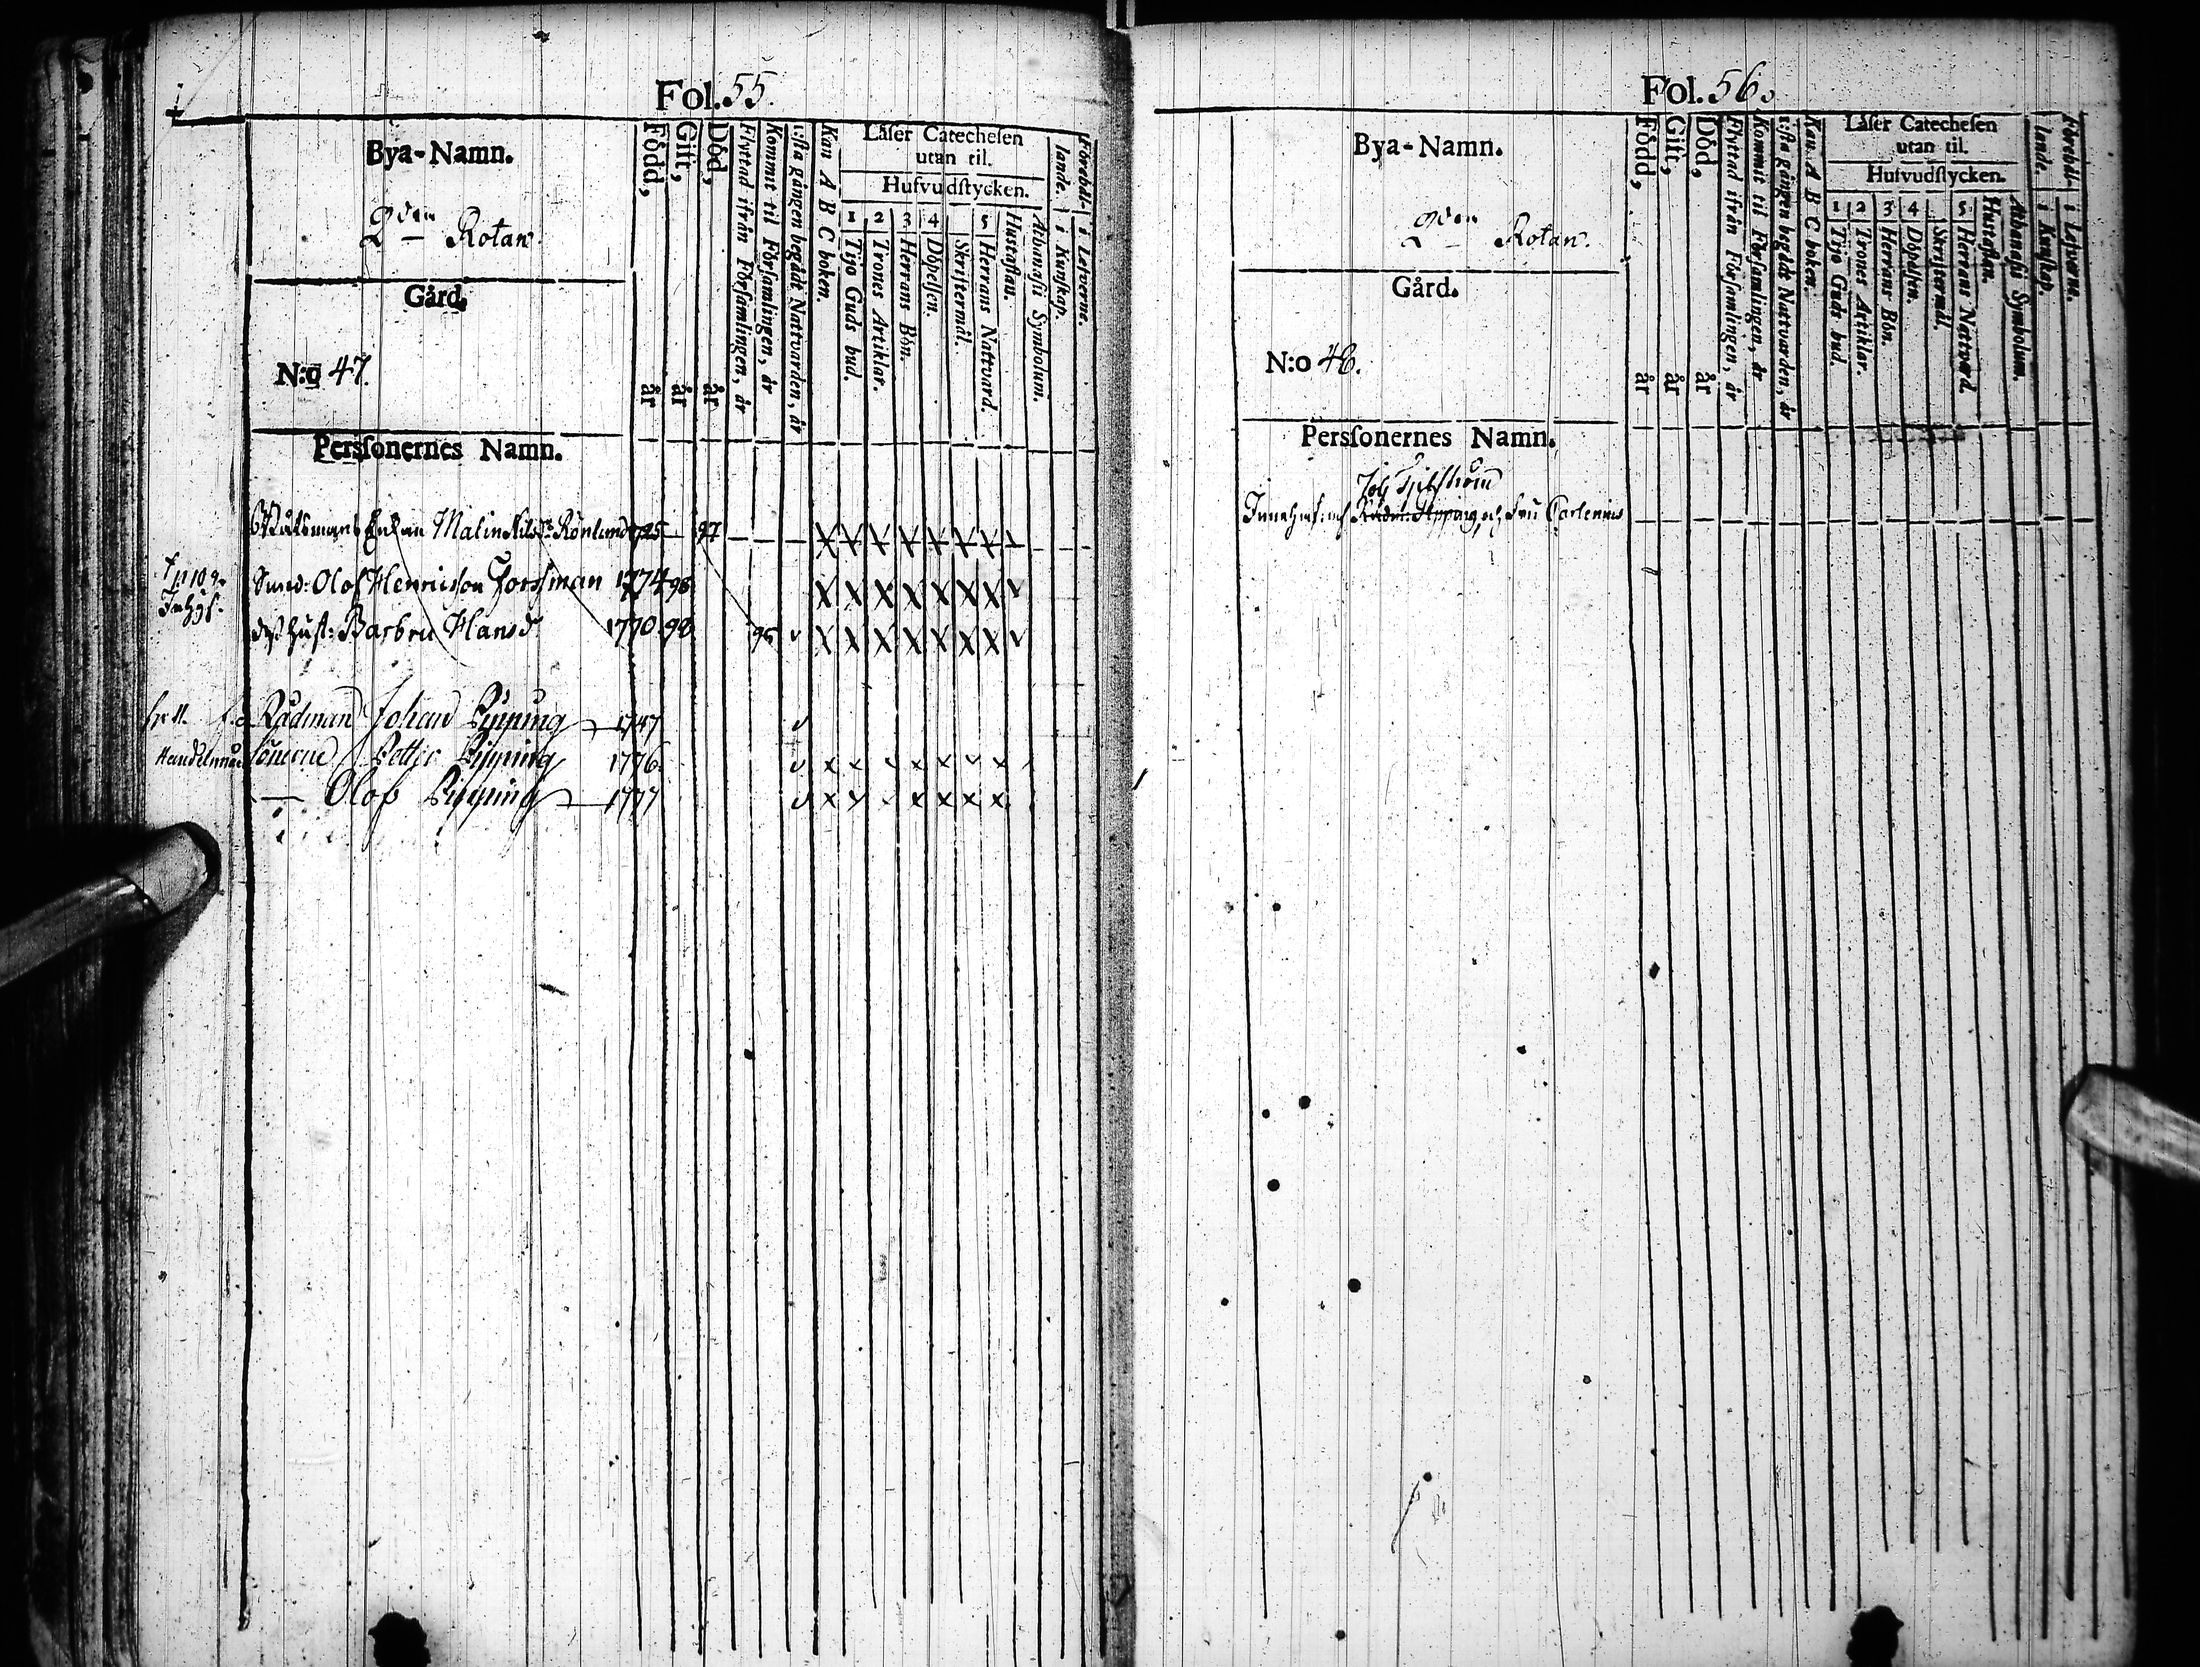 Fol. 55.
Bya-Namn.
2den Rotan.
Gård.
N:o 47.
Persſonernes Namn.
Född, år
Gift, år
Död, år
Flyttad ifrån Förſamlingen, år
Kommit til Förſamlingen, år
1:ſta gången begådt Nattvarden, år
Kan A B C boken.
Läſer Catecheſen
utan til.
Hufvudſtycken.
1 Tijo Guds bud.
2 Trones Artiklar.
3 Herrans Bön.
4 Döpelſen.
Skriftermål.
5 Herrans Nattvard.
Huſtaflan.
Athanaſii Symbolum.
Förehål-
lande.
i Kunſkap.
i Lefverne.
Enkan Malin Rönlund 1725 97
Olof Henricſon Forſsman 1774 98
Huſt: Barbru Hansd: 1770 98 96
Rådman Johan Pipping 1747
Handelsman Sönerne Petter Pipping 1776
— Olof Pipping 1777
Fol. 56.
Bya-Namn.
2den Rotan.
Gård.
N:o 48.
Persſonernes Namn.
Född, år
Gift, år
Död, år
Flyttad ifrån Förſamlingen, år
Kommit til Förſamlingen, år
1:ſta gången begådt Nattvarden, år
Kan A B C boken.
Läſer Catecheſen
utan til.
Hufvudſtycken.
1 Tijo Guds bud.
2 Trones Artiklar.
3 Herrans Bön.
4 Döpelſen.
Skriftermål.
5 Herrans Nattvard.
Huſtaflan.
Athanaſii Symbolum.
Förehål-
lande.
i Kunſkap.
i Lefverne.
Pipping, och Fru Carlenius